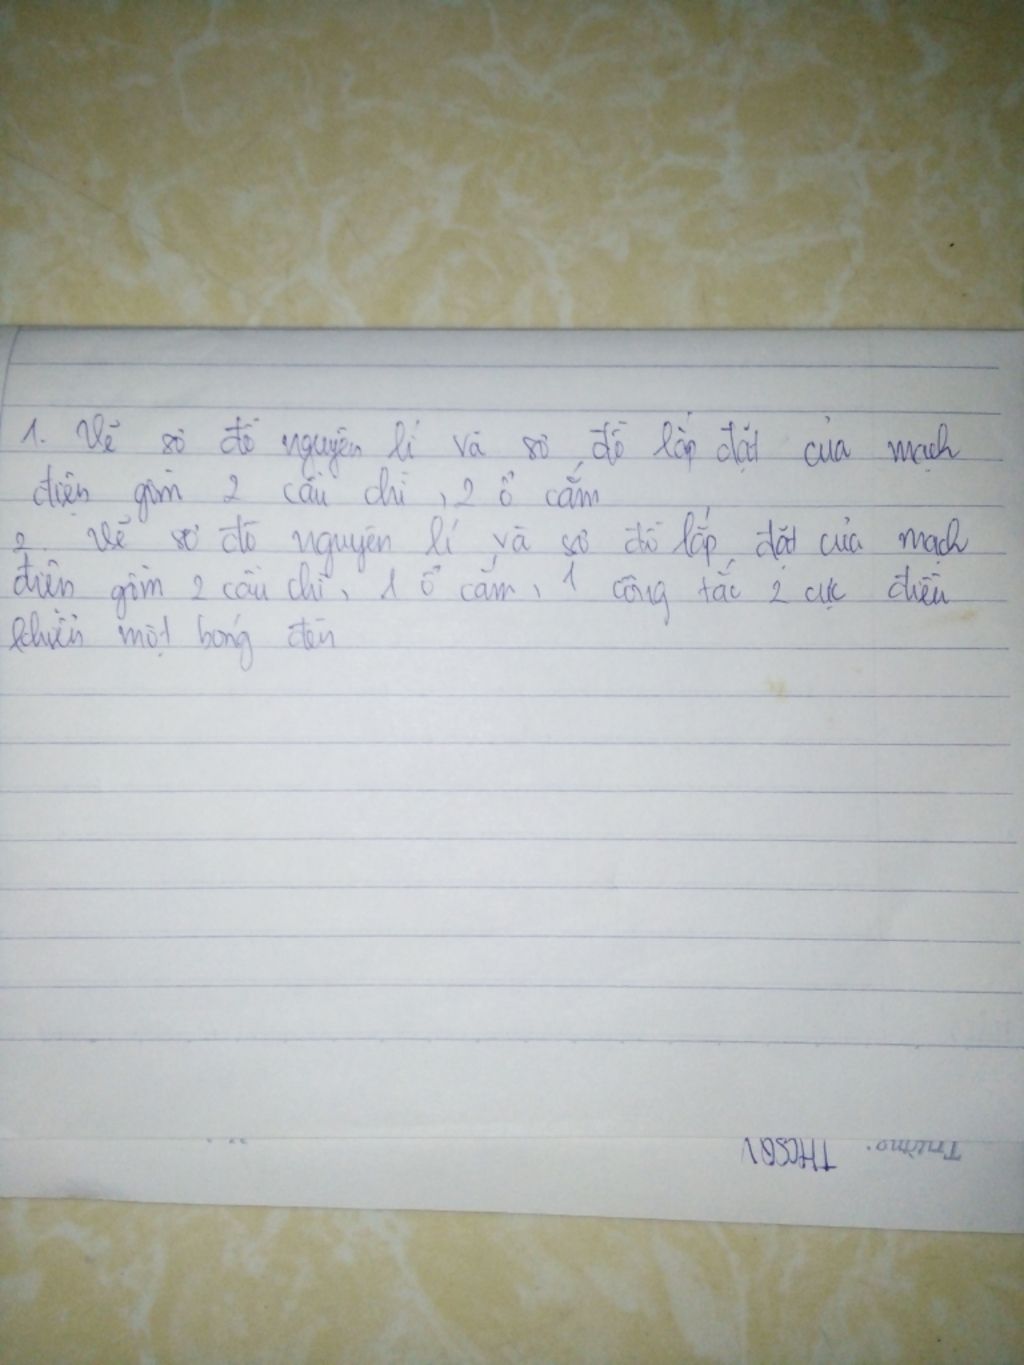 1. Vẽ sơ đồ nguyên lí và sơ đồ lắp đặt của mạch
điện gồm 2 cầu chì, 2 ổ cắm
2. Vẽ sơ đồ nguyên lí và sơ đồ lắp đặt của mạch
điện gồm 2 cầu chì, 1 ổ cắm, 1 công tắc 2 cực điều
khiển một bóng đèn
Trường: THCSQV